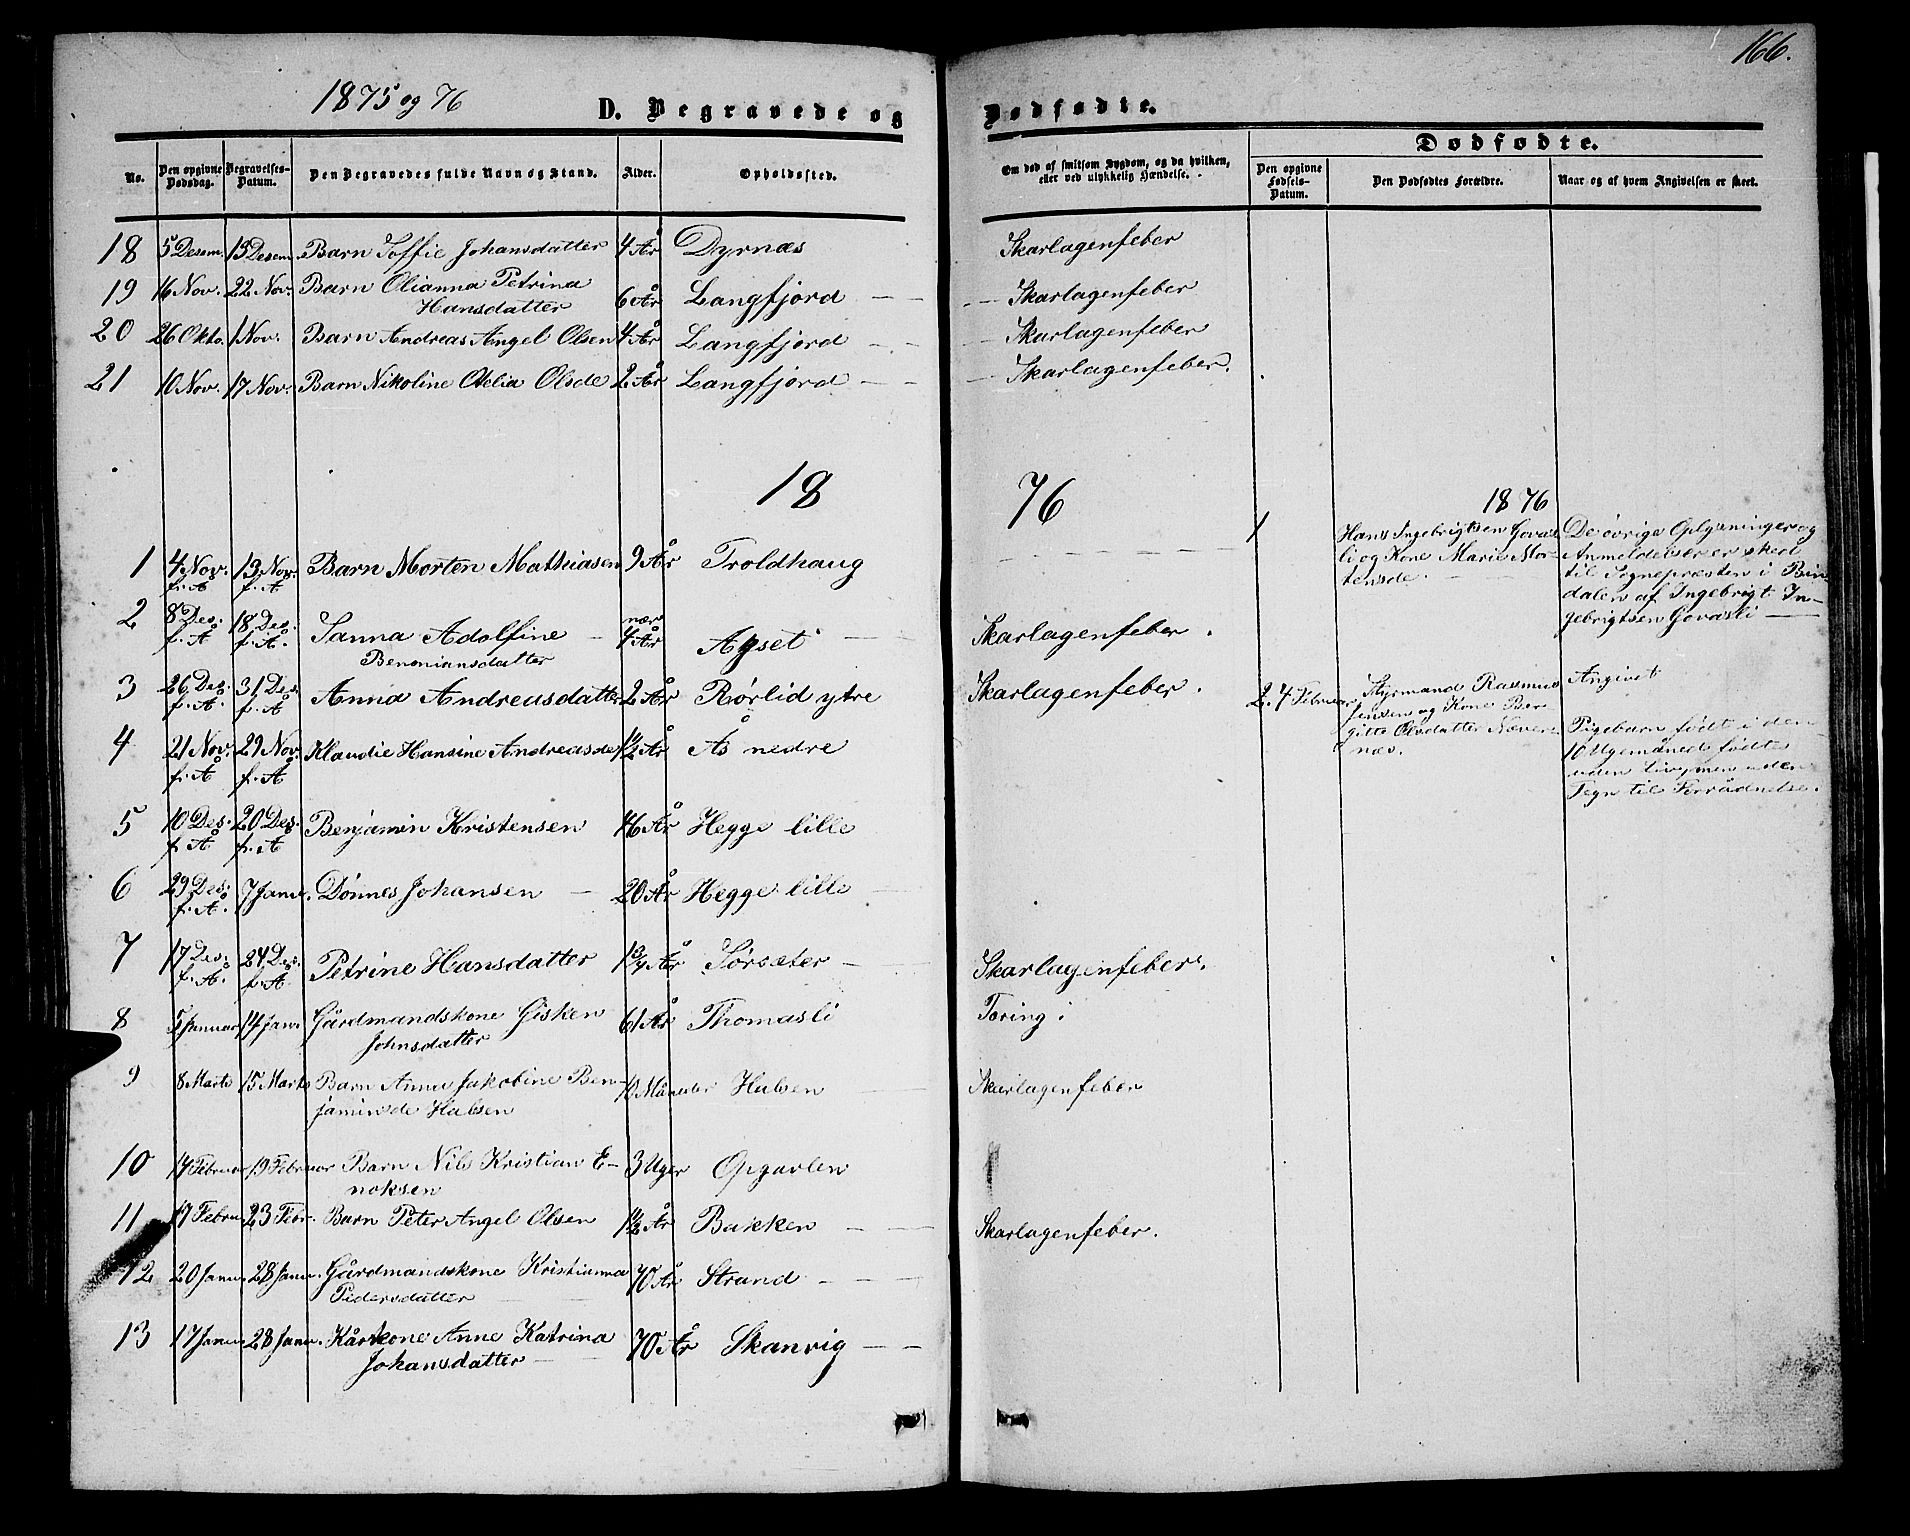 166.
1875 og 76
D. Begravede og
Dødfødte.
Dødfødte.
No.
Den opgivne Dødsdag.
Begravelses-Datum.
Den Begravedes fulde Navn og Stand.
Alder.
Opholdssted.
Om død af smitsom Sygdom, og da hvilken,
eller ved ulykkelig Hændelse.
Den opgivne Fødsels-Datum.
Den Dødfødtes Forældre.
Naar og af hvem Angivelsen er skeet.
18 5 Desem. 13 Desem. Barn Soffie Johansdatter 4 År Dyrnæs Skarlagenfeber
19 16 Nov. 22 Nov. Barn Olianna Petrina
Hansdatter 6 År Langfjord — — — Skarlagenfeber
20 26 Okto. 1 Nov. Barn Andreas Angel Olsen 4 År Langfjord — — — Skarlagenfeber
21 10 Nov. 17 Nov. Barn Nikoline Otelia Olsde 2 År Langfjord — — — Skarlagenfeber.
18 76
1876
1 4 Nov. f. A 13 Nov. f. A Barn Morten Mathiasen 9 År Troldhaug
2 8 Des. f. A 18 Des. f. A. Sanna Adolfine — nær 4 År Apset — Skarlagenfeber.
Benoniansdatter
3 26 Des. f. A. 31 Des. f. A Anna Andreasdatter 2 År Rørlid ytre Skarlagenfeber.
4 21 Nov. f. A 29 Nov. f. A Klaudie Hansine Andreasde 1½ År Ås nedre
5 10 Des. f. A 20 Des. f. A Benjamin Kristensen 46 År Hegge lille
6 29 Des. f. A. 7 Janu. Dønnes Johansen — 20 År Hegge lille
7 17 Des. f. A. 24 Des. f. A Petrine Hansdatter 1¾ År Sørseter — Skarlagenfeber.
8 5 Januar 14 Janu Gårdmandskone Gisken 61 År Thomasli Tæring.
Johnsdatter
9 8 Marts 15 Marts Barn Anna Jakobine Ben-
jaminsde Halsen 10 Måneder Halsen Skarlagenfeber
10 14 Februar 19 Februar Barn Nils Kristian E-
noksen 3 Uger Opgarlen
11 17 Febru 23 Febr. Barn Peter Angel Olsen 1½ År Bakken Skarlagenfeber.
12 20 Janu. 28 Janu. Gårdmandskone Kristianna
Pedersdatter 70 År Strand
13 17 Janu. 28 Janu. Kårkone Anne Katrina
Johansdatter 70 År Skanvig
1 Hans Ingebrigtsen Govas-
li og Kone Marie Mor-
tensde.
De øvrige Oplysninger og
Anmeldelser er skeet
til Sognepræsten i Bin
dalen af Ingebrigt In-
gebrigtsen Govasli
2. 4 Februar Styrmand Rasmus
Jensen og Kone Ber
gitte Olsdatter Næver-
næs.
Angivet
Pigebarn født i den
10 Ugemåned fødte
uden livymen uden
Tegn til Forrådnelse.